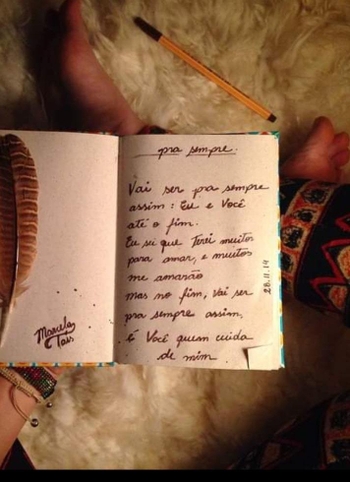 pra sempre.
Vai ser pra sempre
assim: Eu e Você
até o fim.
Eu sei que Terei muitos
para amar, e muitos
me amarão
mas no fim, Vai ser
pra sempre assim,
é Você quem cuida
de mim
28.11.14
Marcela
Tais